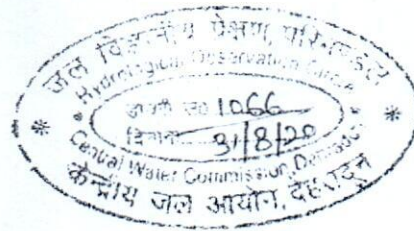 जल विज्ञानीय प्रेक्षण परिमण्डल
Hydrological Observation Circle
डायरी सं० 1066
दिनांक 31/8/20
Central Water Commission, Dehradun
केन्द्रीय जल आयोग, देहरादून